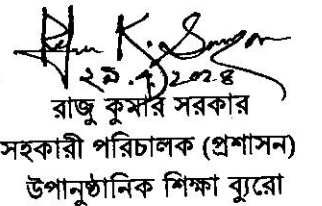 ২৯.৭.২০২৪
রাজু কুমার সরকার
সহকারী পরিচালক (প্রশাসন)
উপানুষ্ঠানিক শিক্ষা ব্যুরো